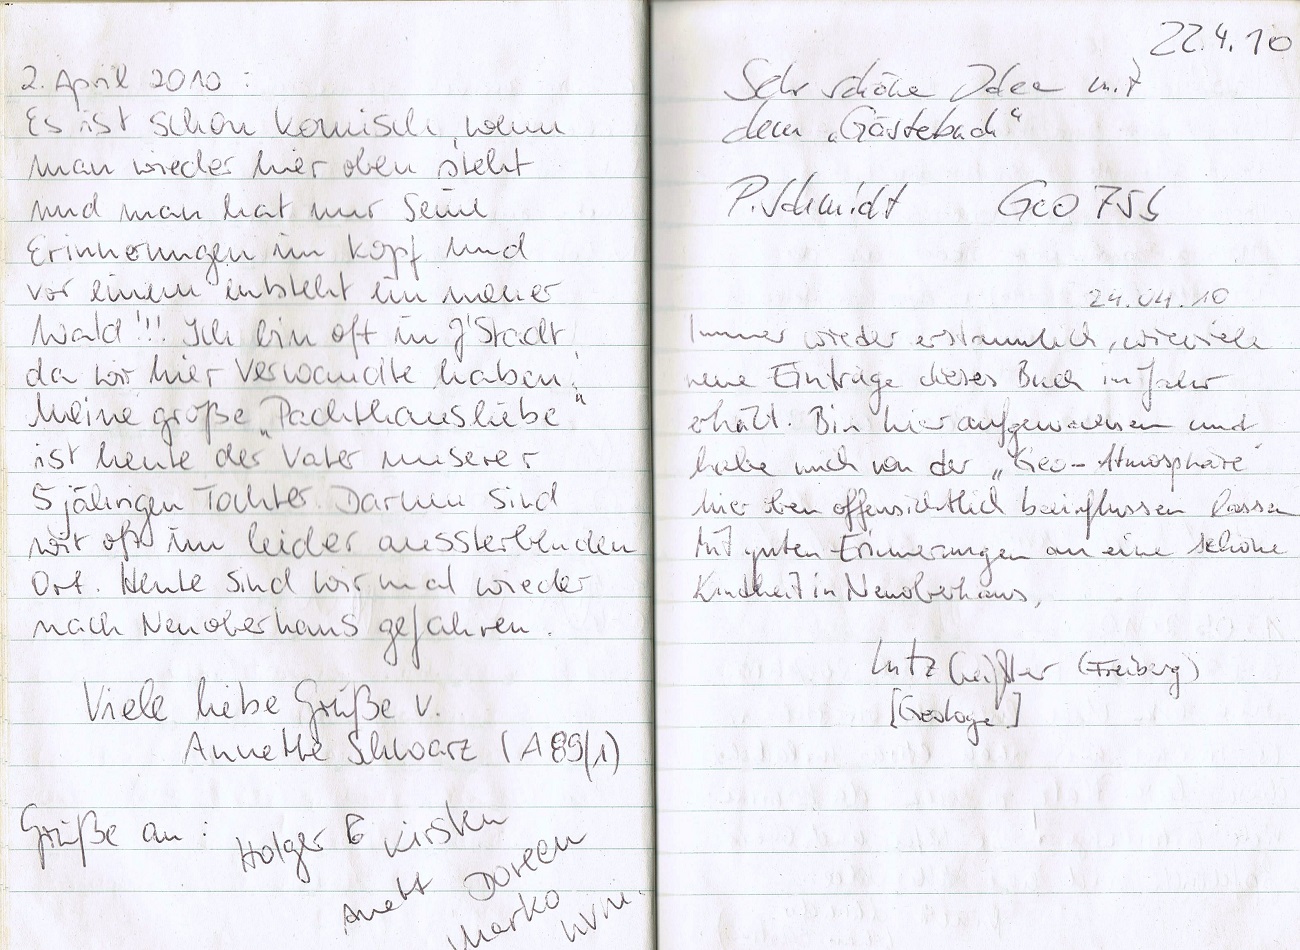 2. April 2010 :
Es ist schon komisch, wenn
man wieder hier oben steht
und man hat nur seine
Erinnerungen im Kopf und
vor einem entsteht ein neuer
Wald!!! Ich bin oft in J'Stadt
da wir hier Verwandte haben!
Meine große „Pachthausliebe“
ist heute der Vater unserer
5 jährigen Tochter. Darum sind
wir oft im leider aussterbenden
Ort. Heute sind wir mal wieder
nach Neuoberhaus gefahren.
Viele liebe Grüße v.
Annette Schwarz (A 89/1)
Grüße an :
Holger & Kirsten
Anett Doreen
Marko
22.4.10
Sehr schöne Idee mit
dem „Gästebuch“
P. Schmidt Geo 756
24.04.10
Immer wieder erstaunlich, wieviele
neue Einträge dieses Buch im Jahr
erhält. Bin hier aufgewachsen und
habe mich von der „Geo-Atmosphäre“
hier oben offensichtlich beeinflussen lassen
Mit guten Erinnerungen an eine schöne
Kindheit in Neuoberhaus,
Lutz (Freiberg)
[Geologe]